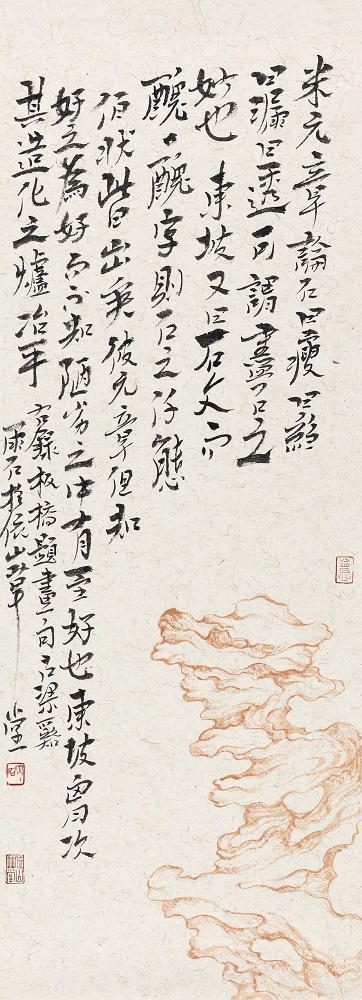 米元章論石曰瘦曰縐
曰漏曰透可謂盡石之
妙也東坡又曰石文而
醜一醜字則石之千態
佰狀皆出矣彼元章但知
好之為好而不知陋劣之中有至好也東坡胸次
其造化之爐冶乎
右錄板橋題畫句 梁谿
雨石於依山草堂